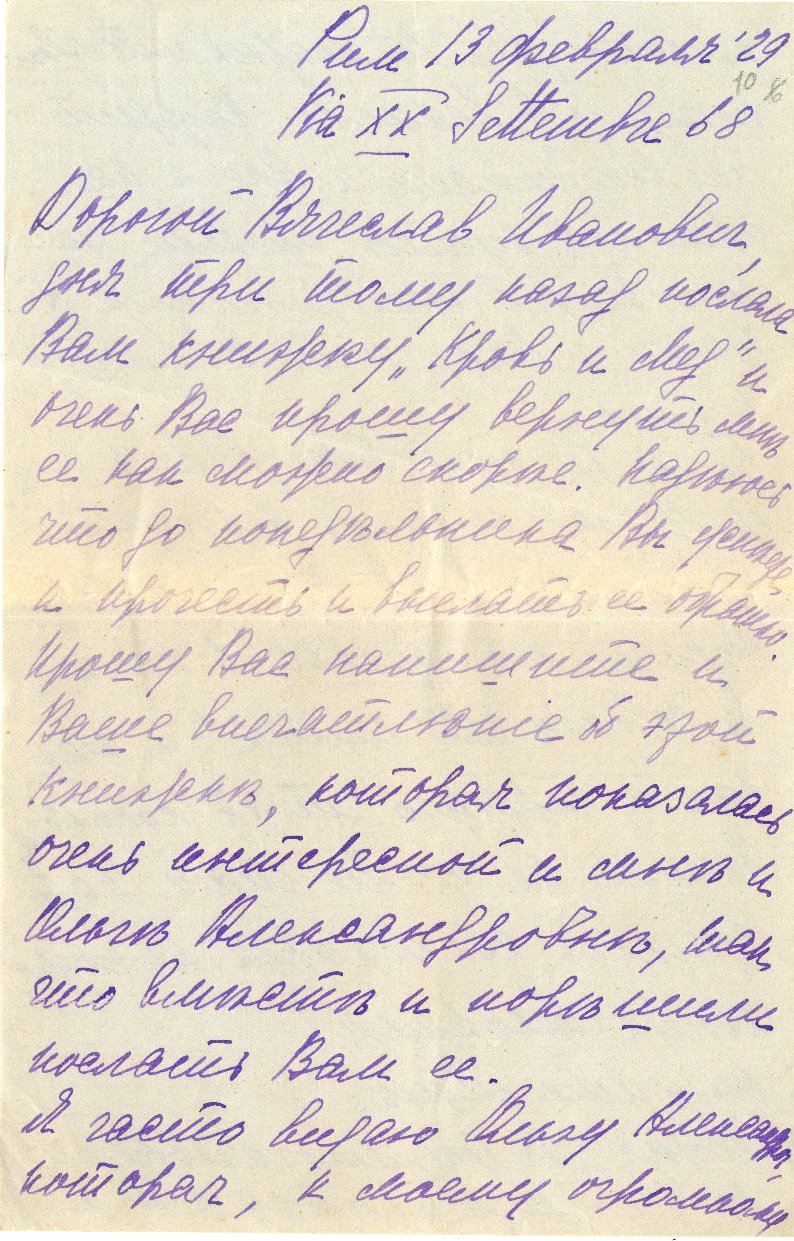 Рим 13 февраля '29
10
Via XX Settembre 68
Дорогой Вячеслав Иванович,
дня три тому назад послала
Вам книжку „Кровь и Мед" и
очень Вас прошу вернуть мнѣ
ее как можно скорѣе. Надѣюсь
что до понедѣльника Вы успѣете
и прочесть и выслать ее обратно.
Прошу Вас напишите и
Ваше впечатлѣніе об этой
книжкѣ, которая показалась
очень интересной и мнѣ и
Ольгѣ Александровнѣ, так
что вмѣстѣ и порѣшили
послать Вам ее.
Я часто видаю Ольгу
которая, к моему огромному